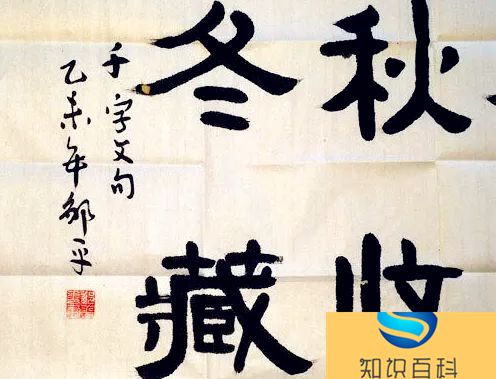 秋收
冬藏
千字文句
乙未年平
知识百科